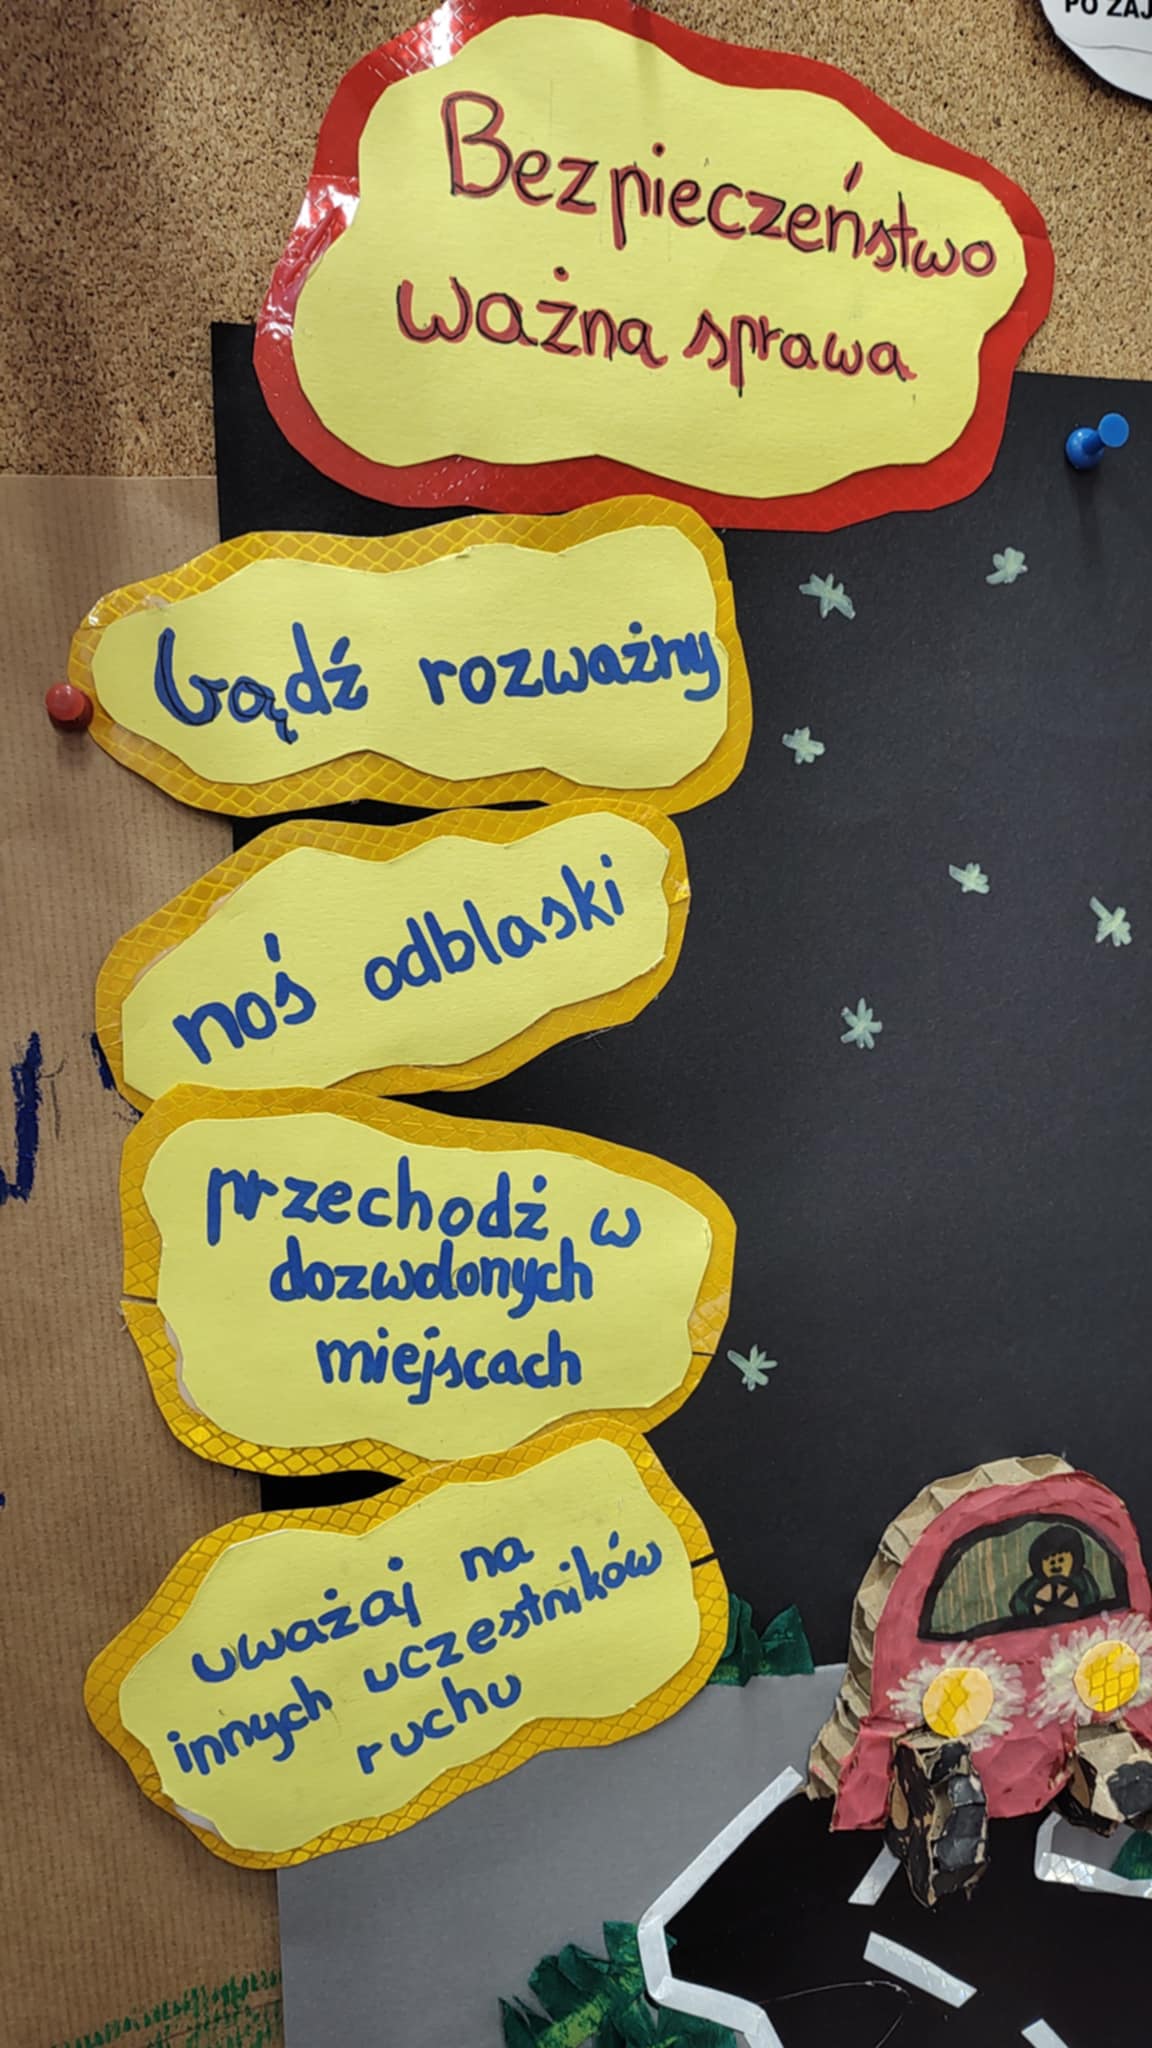 PO ZAJ
Bezpieczeństwo
ważna sprawa
bądź rozważny
noś odblaski
przechodż w
dozwolonych
miejscach
uważaj na
innych uczestników
ruchu